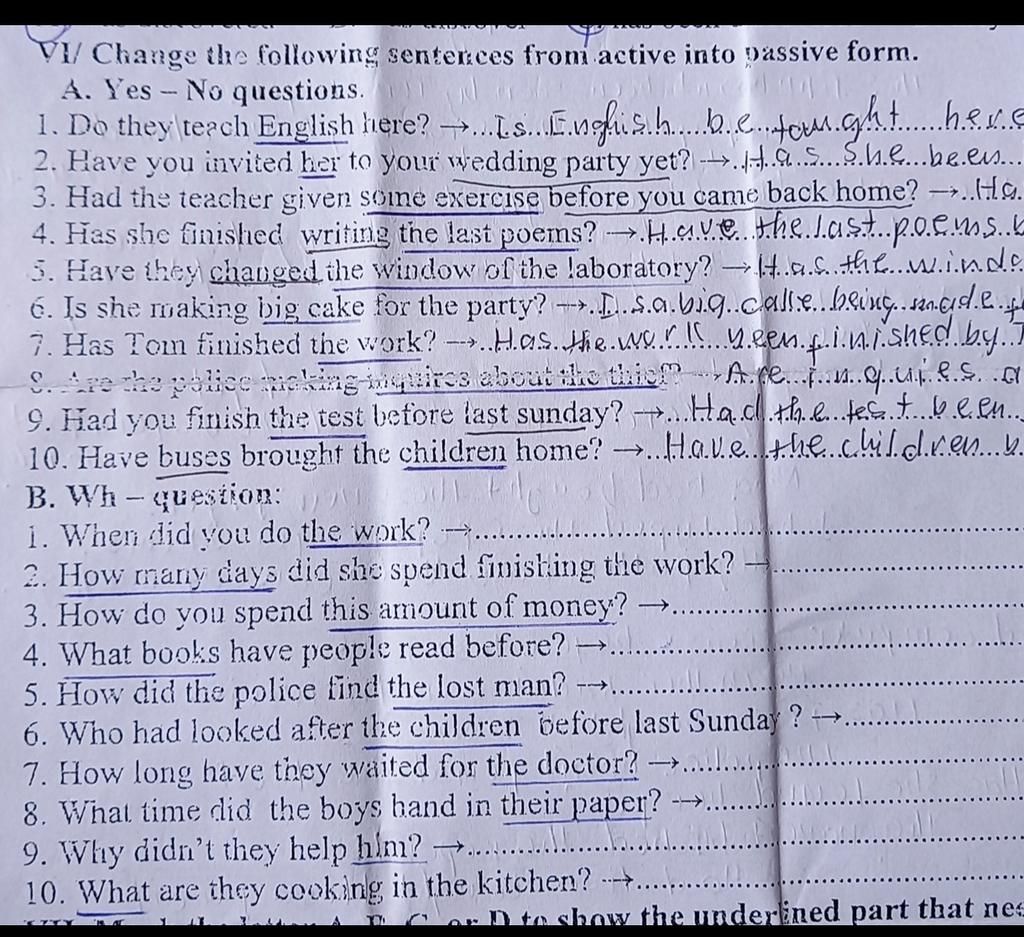 VI/ Change the following sentences from active into passive form.
A. Yes – No questions.
1. Do they teach English here? →...Is...Enghish....be...tought......here
2. Have you invited her to your wedding party yet? →.Has...She...been...
3. Had the teacher given some exercise before you came back home? →..Ha.
4. Has she finished writing the last poems? →.Have..the.last..poems.
5. Have they changed the window of the laboratory? →.Has.the..windo
6. Is she making big cake for the party? →..Is.a.big..cake..being..made.
7. Has Tom finished the work? →..Has..the.work...been.finished.by.T
8. Are the police making inquires about the thief? →.Are...inquires.a
9. Had you finish the test before last sunday? →...Had.the..test..been..
10. Have buses brought the children home? →...Have..the..children..
B. Wh – question:
1. When did you do the work? →................................
2. How many days did she spend finishing the work? →................
3. How do you spend this amount of money? →......................
4. What books have people read before? →..........................
5. How did the police find the lost man? →..........................
6. Who had looked after the children before last Sunday ? →............
7. How long have they waited for the doctor? →......................
8. What time did the boys hand in their paper? →.....................
9. Why didn't they help him? →................................
10. What are they cooking in the kitchen? →........................
or D to show the underlined part that